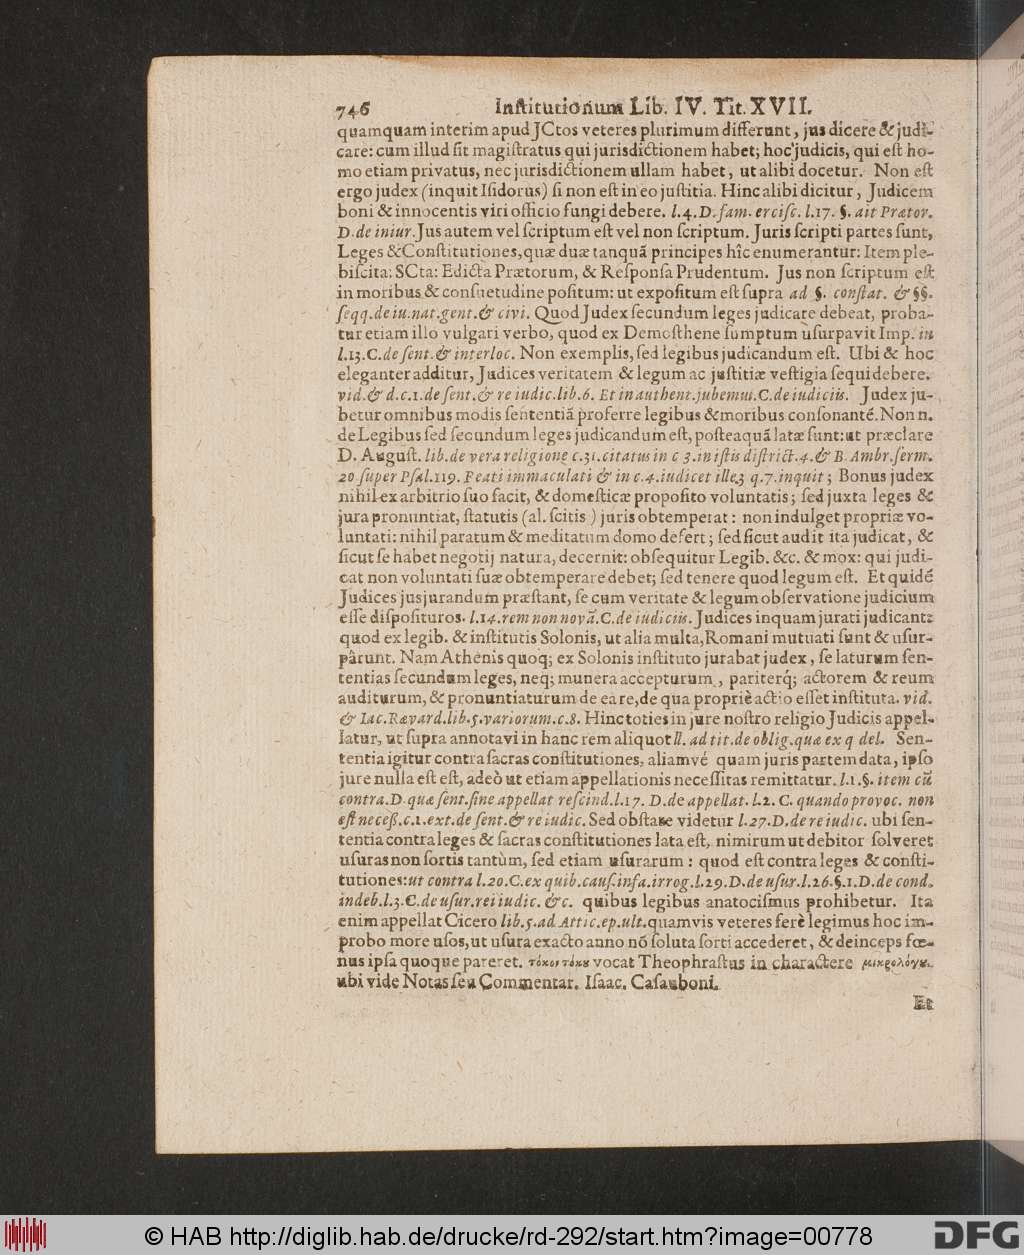 746 Institutionum Lib. IV. Tit. XVII.
quamquam interim apud JCtos veteres plurimum differunt, jus dicere & judi-
care: cum illud ſit magiſtratus qui jurisdictionem habet; hoc judicis, qui eſt ho-
mo etiam privatus, nec jurisdictionem ullam habet, ut alibi docetur. Non eſt
ergo judex (inquit Iſidorus) ſi non eſt in eo juſtitia. Hinc alibi dicitur, Judicem
boni & innocentis viri officio fungi debere. l.4.D.fam. erciſc. l.17. §. ait Prætor.
D. de iniur. Jus autem vel ſcriptum eſt vel non ſcriptum. Juris ſcripti partes ſunt,
Leges & Conſtitutiones, quæ duæ tanquã principes hîc enumerantur: Item ple-
biſcita: SCta: Edicta Prætorum, & Reſponſa Prudentum. Jus non ſcriptum eſt
in moribus & conſuetudine poſitum: ut expoſitum eſt ſupra ad §. conſtat. & §§.
ſeqq. de iu. nat. gent. & civi. Quod Judex ſecundum leges judicare debeat, proba-
tur etiam illo vulgari verbo, quod ex Demoſthene ſumptum uſurpavit Imp. in
l.13.C. de ſent. & interloc. Non exemplis, ſed legibus judicandum eſt. Ubi & hoc
eleganter additur, Judices veritatem & legum ac juſtitiæ veſtigia ſequi debere.
vid. & d.c.1. de ſent. & re iudic. lib.6. Et in authent. jubemus. C. de iudiciis. Judex ju-
betur omnibus modis ſententiã proferre legibus & moribus conſonanté. Non n.
de Legibus ſed ſecundum leges judicandum eſt, poſteaquã latæ ſunt: ut præclare
D. Auguſt. lib. de vera religione c.31. citatus in c 3. in iſtis diſtrict. 4. & B. Ambr. ſerm.
20 ſuper Pſal.119. Beati immaculati & in c.4. iudicet ille 3 q.7. inquit; Bonus judex
nihil ex arbitrio ſuo facit, & domeſticæ propoſito voluntatis; ſed juxta leges &
jura pronuntiat, ſtatutis (al. ſcitis) juris obtemperat: non indulget propriæ vo-
luntati: nihil paratum & meditatum domo defert; ſed ſicut audit ita judicat, &
ſicut ſe habet negotij natura, decernit: obſequitur Legib. &c. & mox: qui judi-
cat non voluntati ſuæ obtemperare debet; ſed tenere quod legum eſt. Et quidé
Judices jusjurandum præſtant, ſe cum veritate & legum obſervatione judicium
eſſe diſpoſituros. l.14. rem non novã. C. de iudiciis. Judices inquam jurati judicant:
quod ex legib. & inſtitutis Solonis, ut alia multa, Romani mutuati ſunt & uſur-
pârunt. Nam Athenis quoq; ex Solonis inſtituto jurabat judex, ſe laturum ſen-
tentias ſecundum leges, neq; munera accepturum, pariterq́; actorem & reum
auditurum, & pronuntiaturum de ea re, de qua propriè actio eſſet inſtituta. vid.
& Iac. Rævard. lib.5. variorum. c.8. Hinc toties in jure noſtro religio Judicis appel-
latur, ut ſupra annotavi in hanc rem aliquot ll. ad tit. de oblig. quæ ex q del. Sen-
tentia igitur contra ſacras conſtitutiones, aliamvé quam juris partem data, ipſo
jure nulla eſt eſt, adeò ut etiam appellationis neceſſitas remittatur. l.1.§. item cũ
contra. D. quæ ſent. ſine appellat reſcind. l.17. D. de appellat. l.2. C. quando provoc. non
eſt neceß. c.1. ext. de ſent. & re iudic. Sed obſtare videtur l.27. D. de re iudic. ubi ſen-
tentia contra leges & ſacras conſtitutiones lata eſt, nimirum ut debitor ſolveret
uſuras non ſortis tantùm, ſed etiam uſurarum: quod eſt contra leges & conſti-
tutiones: ut contra l.20. C. ex quib. cauſ. infa. irrog. l.29. D. de uſur. l.26.§.1. D. de cond.
indeb. l.3. C. de uſur. rei iudic. &c. quibus legibus anatociſmus prohibetur. Ita
enim appellat Cicero lib.5. ad Attic. ep. ult. quamvis veteres ferè legimus hoc im-
probo more uſos, ut uſura exacto anno nõ ſoluta ſorti accederet, & deinceps fœ-
nus ipſa quoque pareret. τόκον τόκȣ vocat Theophraſtus in charactere μικρολόγȣ.
ubi vide Notas ſeu Commentar. Iſaac. Caſauboni.
Et
© HAB http://diglib.hab.de/drucke/rd-292/start.htm?image=00778
DFG